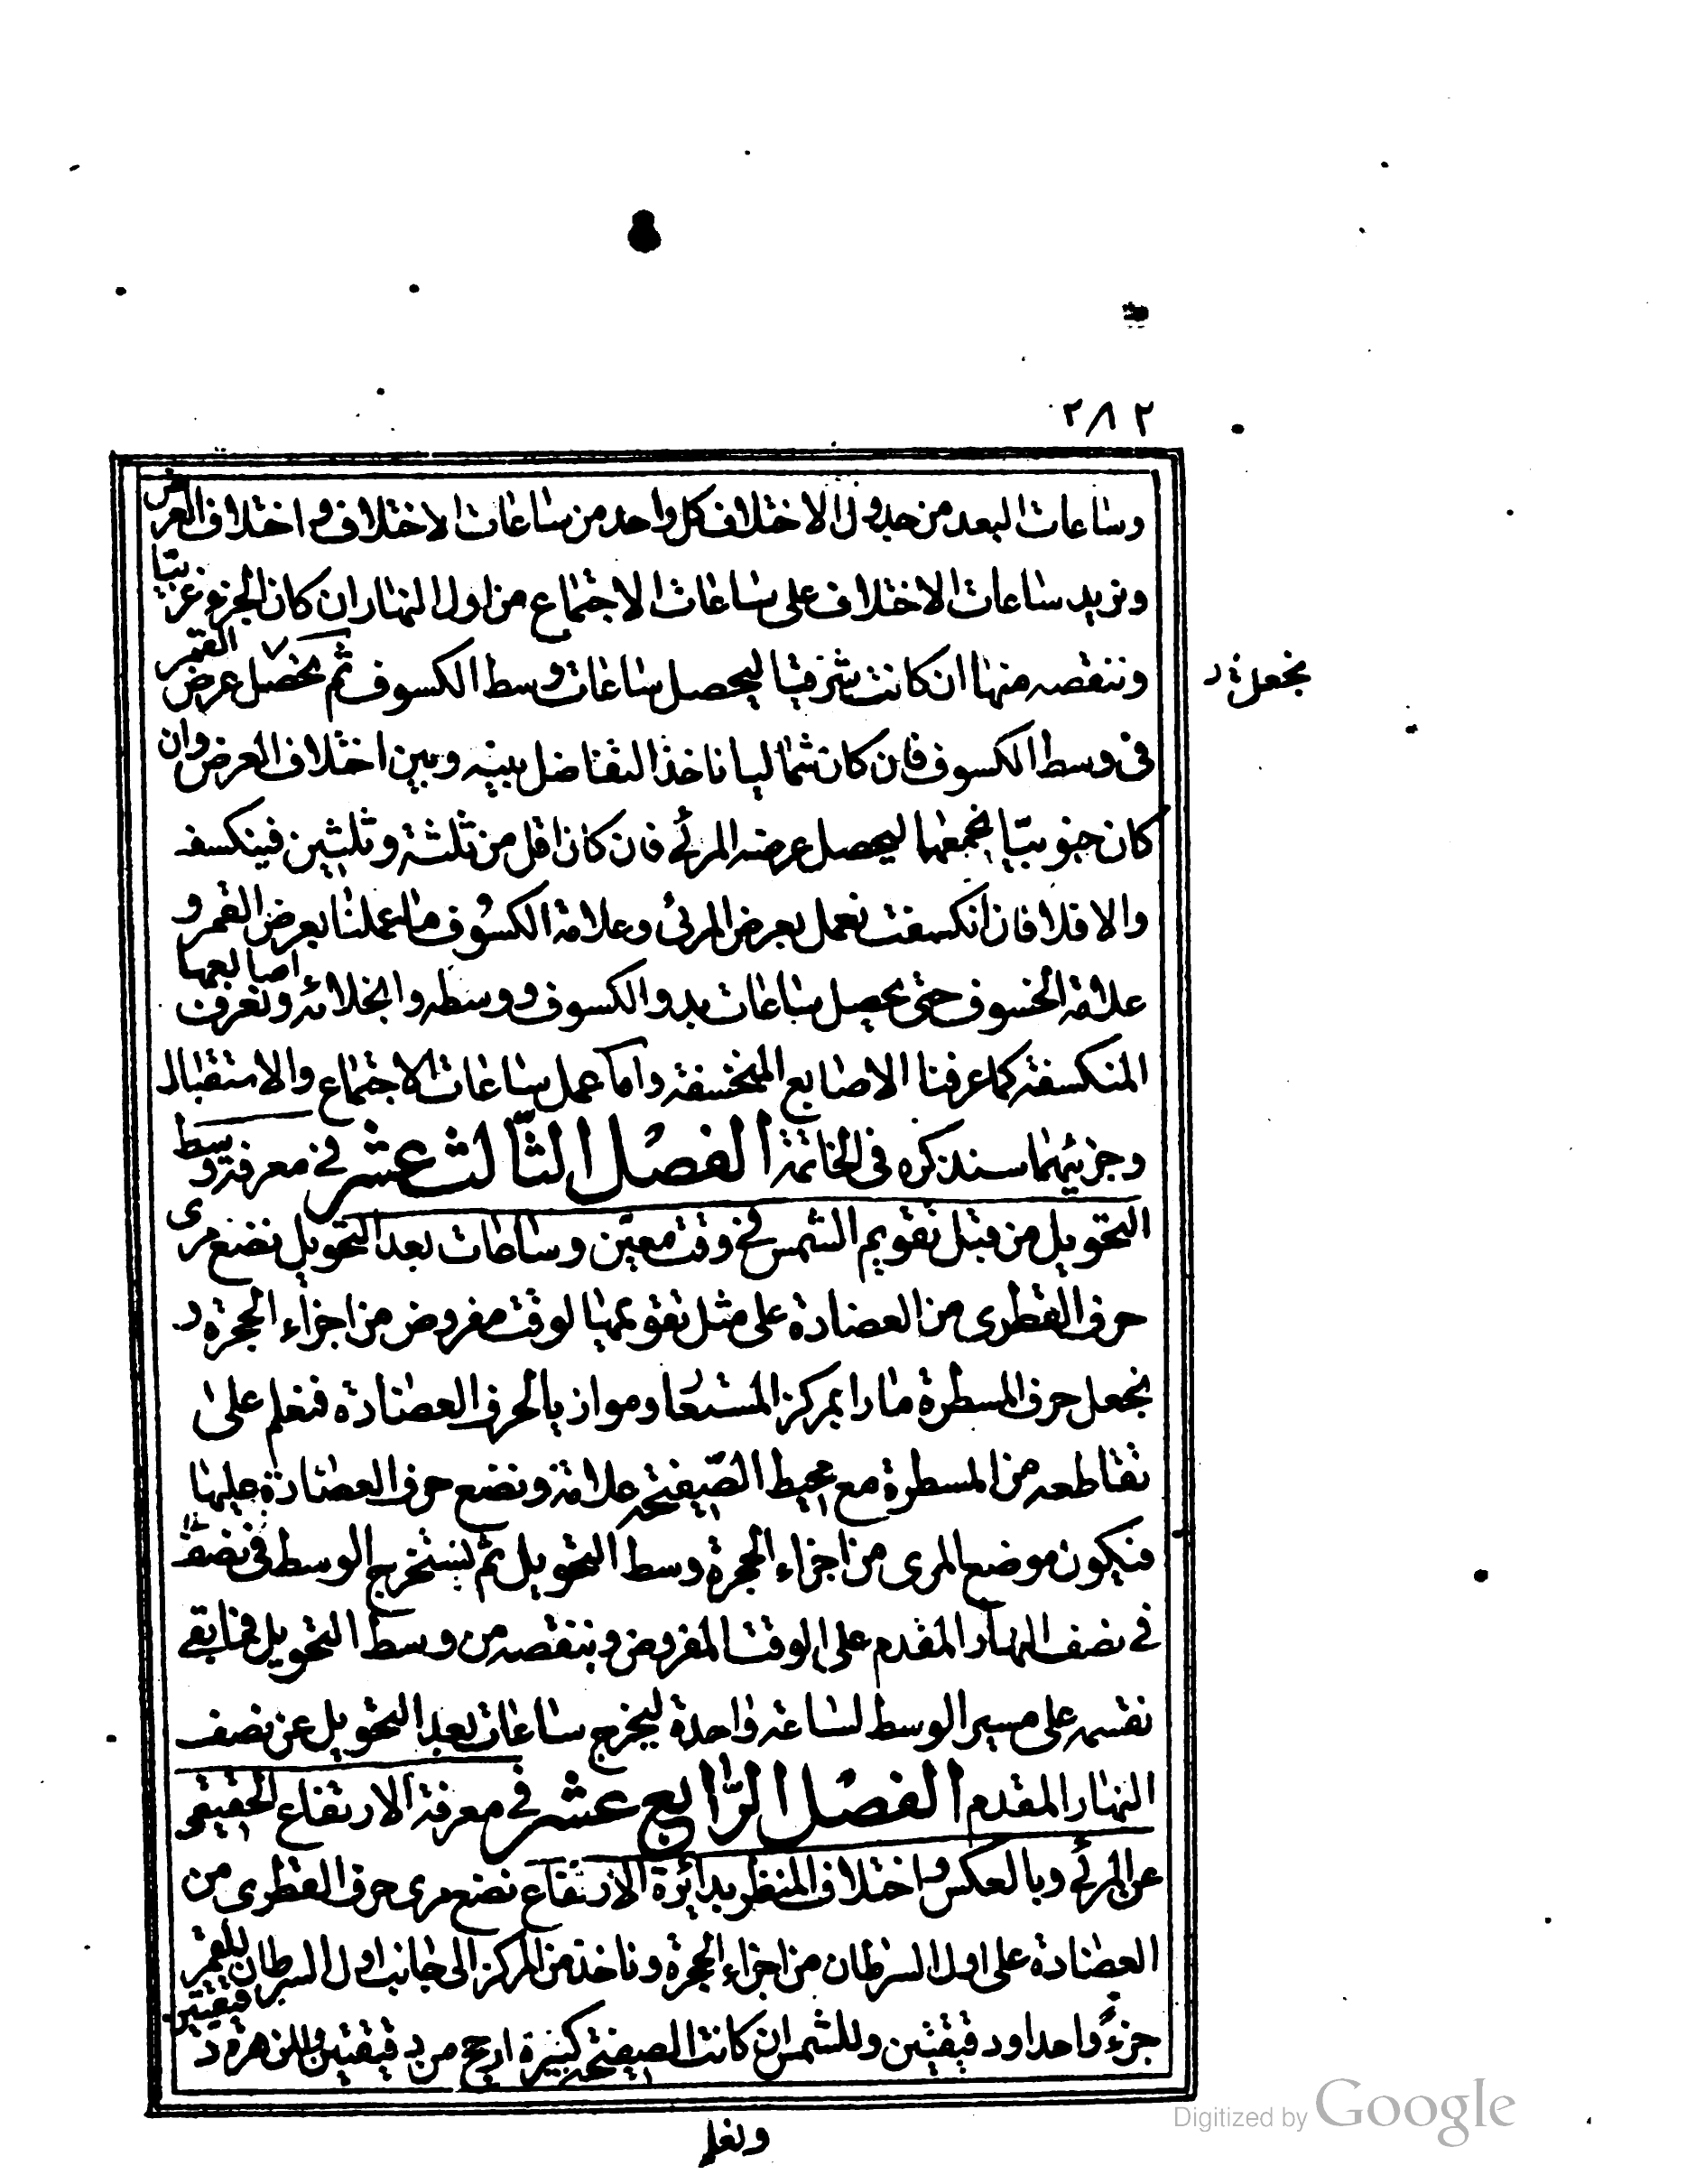 ٢٨٢
وساعات البعد من جدول الاختلاف كل واحد من ساعات الاختلاف واختلاف العرض
ونزيد ساعات الاختلاف على ساعات الاجتماع من اول النهار ان كان الجزو غربيا
وننقصه منها ان كانت شرقيا ليحصل ساعات وسط الكسوف ثم نحصل عرض القمر
نجعل
فى وسط الكسوف فان كان شماليا ناخذ التفاضل بينه وبين اختلاف العرض وان
كان جنوبيا نجمعها ليحصل عرضه المرئى فان كان اقل من ثلثة وثلثين فينكسف
والا فلا فان انكسفت نعمل بعرض المرئى وعلامة الكسوف ما عملنا بعرض القمر و
علامة الخسوف حتى يحصل ساعات بدو الكسوف ووسطه وانجلائه ونعرف اصابعها
المنكسفة كما عرفنا الاصابع المنخسفة واما عمل ساعات الاجتماع والاستقبال
وجزئيهما سنذكره فى الخاتمة الفصل الثالث عشر فى معرفة وسط
التحويل من قبل تقويم الشمس فى وقت معين وساعات بعد التحويل نضع مرى
حرف القطرى من العضادة على مثل تقويمها لوقت مفروض من اجزاء الحجرة و
نجعل حرف المسطرة مارا بمركز المستعا وموازيا لحرف العضادة فنعلم على
تقاطعه من المسطرة مع محيط الصفيحة علامة ونضع حرف العضادة عليها
فيكون موضع المرى من اجزاء الحجرة وسط التحويل ثم نستخرج الوسط فى نصف
فى نصف النهار المقدم على الوقت المفروض وننقصه من وسط التحويل فما بقى
نقسمه على مسير الوسط لساعة واحدة ليخرج ساعات بعد التحويل عن نصف
النهار المقدم الفصل الرابع عشر فى معرفة الارتفاع الحقيقى
عن المرئى وبالعكس واختلاف المنظر بدائرة الارتفاع نضع مرى حرف القطرى من
العضادة على اول السرطان من اجزاء الحجرة وناخذ من المركز الى جانب اول السرطان للقمر
جزءً واحدا ودقيقتين وللشمس ان كانت الصفيحة كبيرة ارجح من دقيقتين وللزهرة دقيقتين
ونعلم
Digitized by Google